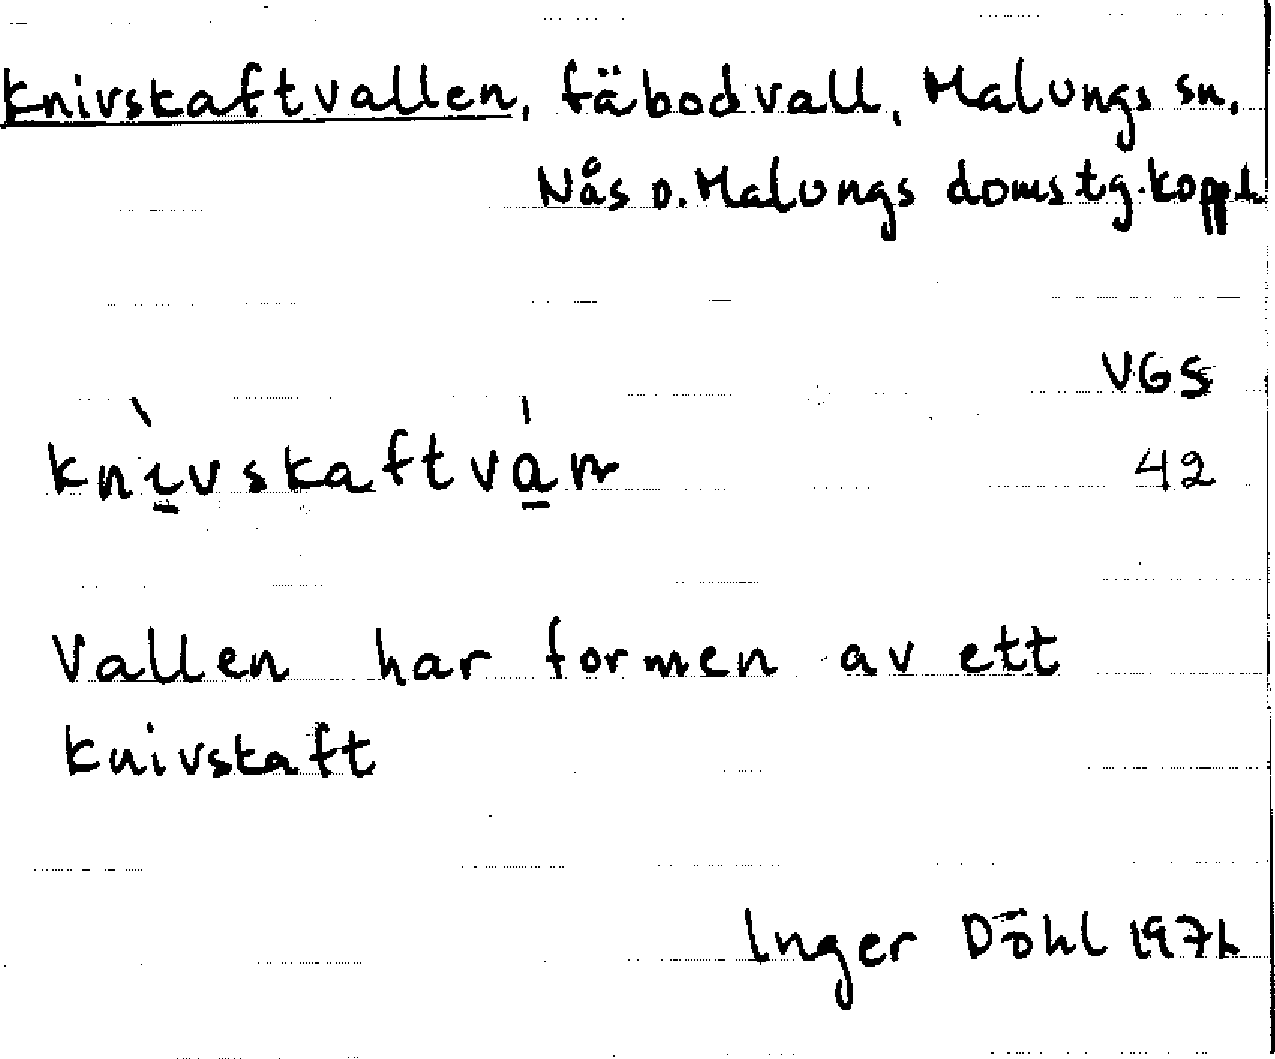 Knivskaftvallen, fäbodvall, Malungs sn.
Nås o. Malungs domstg. Koppl
VGS
knìvskaftván 42
Vallen har formen av ett
knivskaft
Inger Döhl 1974